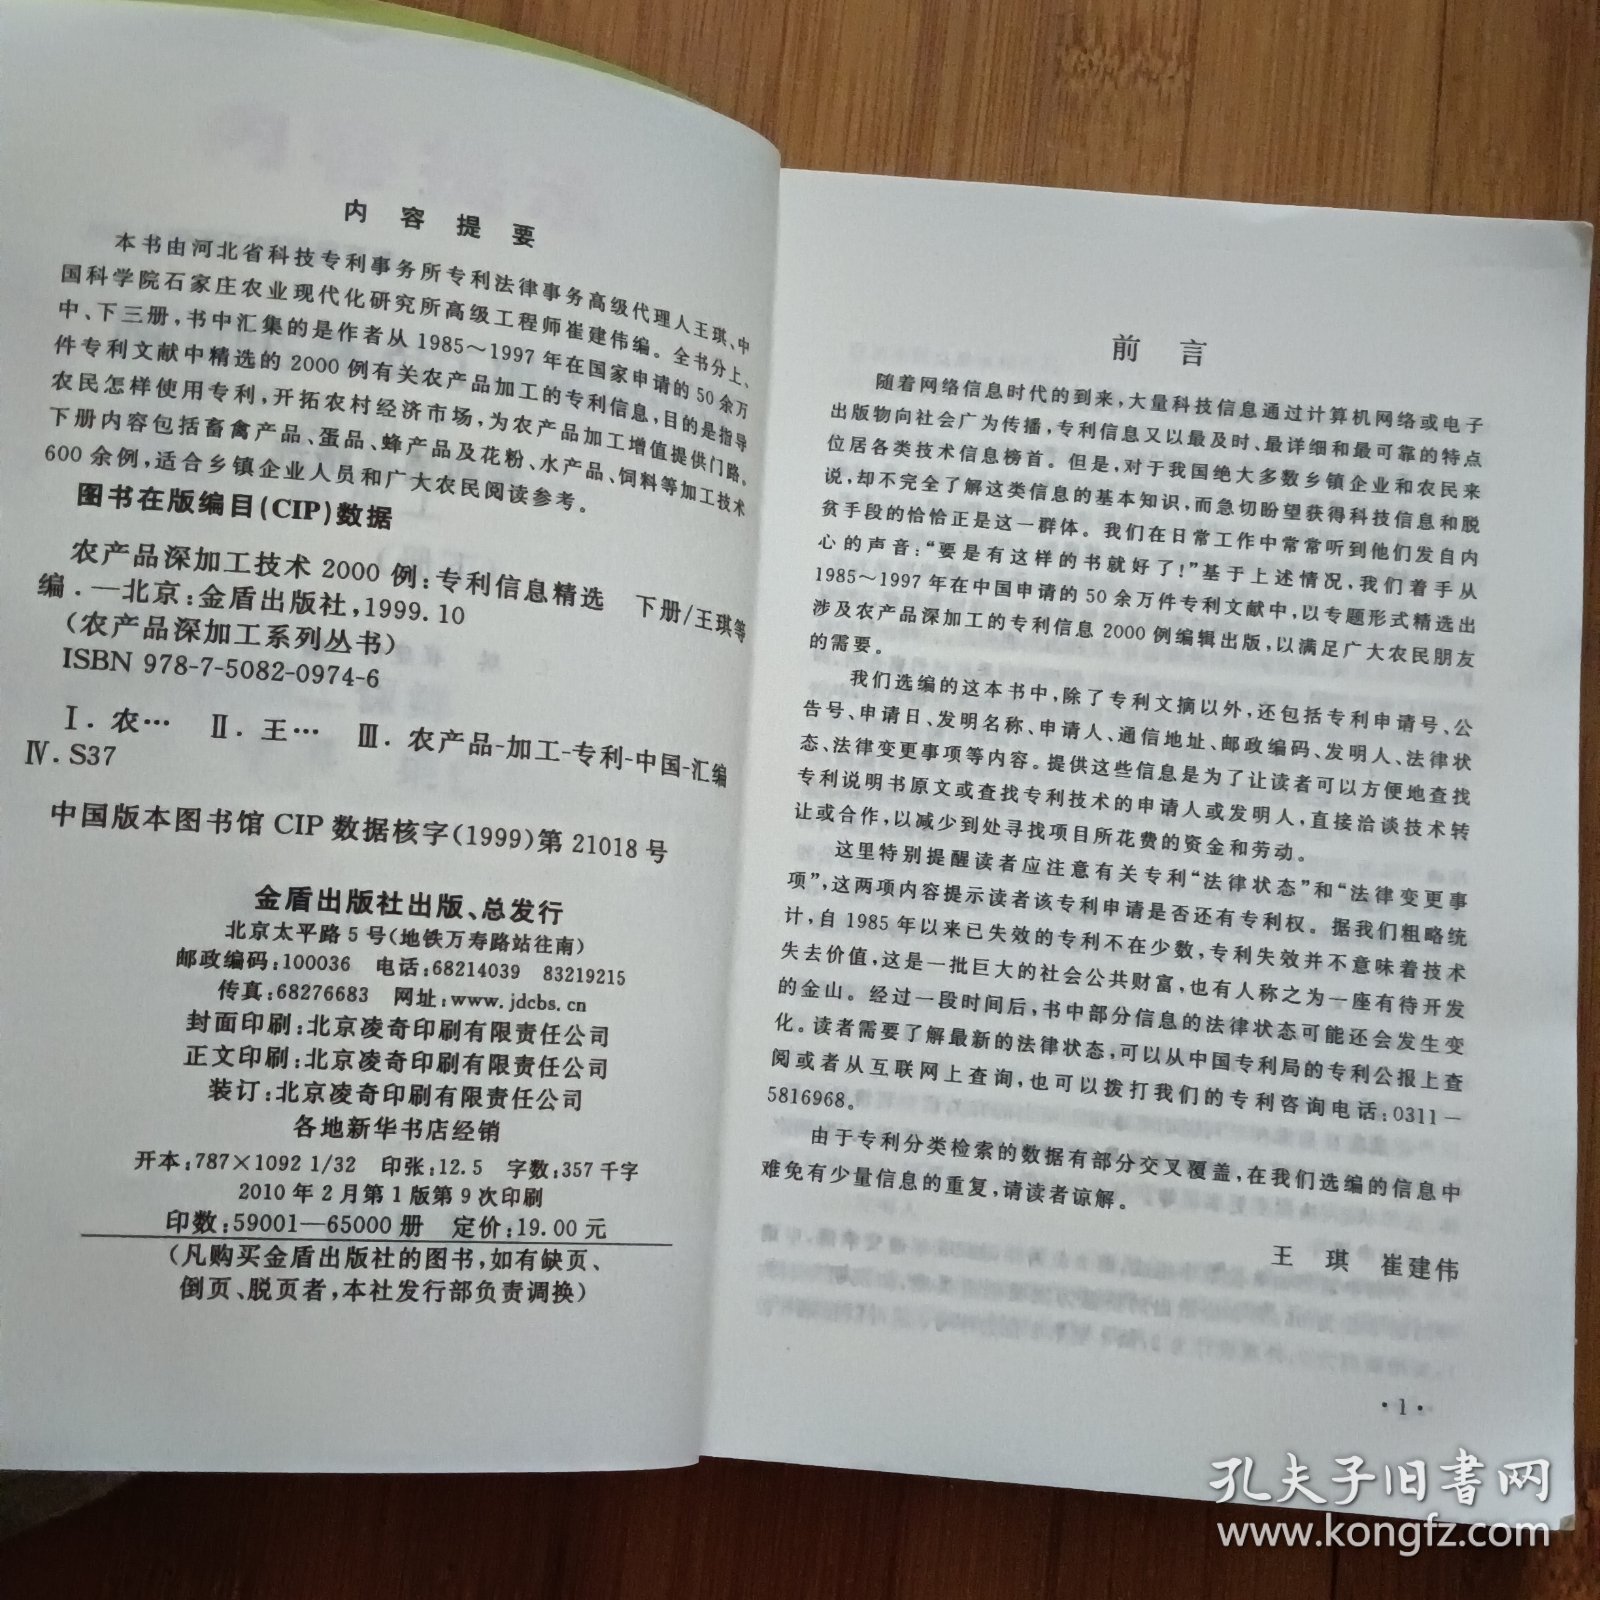 内 容 提 要
本书由河北省科技专利事务所专利法律事务高级代理人王琪、中
国科学院石家庄农业现代化研究所高级工程师崔建伟编。全书分上、
中、下三册，书中汇集的是作者从1985～1997年在国家申请的50余万
件专利文献中精选的2000例有关农产品加工的专利信息，目的是指导
农民怎样使用专利，开拓农村经济市场，为农产品加工增值提供门路。
下册内容包括畜禽产品、蛋品、蜂产品及花粉、水产品、饲料等加工技术
600余例，适合乡镇企业人员和广大农民阅读参考。
图书在版编目(CIP)数据
农产品深加工技术 2000 例：专利信息精选 下册/王琪等
编．—北京：金盾出版社，1999.10
（农产品深加工系列丛书）
ISBN 978-7-5082-0974-6
Ⅰ．农… Ⅱ．王… Ⅲ．农产品-加工-专利-中国-汇编
Ⅳ．S37
中国版本图书馆 CIP 数据核字(1999)第 21018 号
金盾出版社出版、总发行
北京太平路5号(地铁万寿路站往南)
邮政编码：100036 电话：68214039 83219215
传真：68276683 网址：www.jdcbs.cn
封面印刷：北京凌奇印刷有限责任公司
正文印刷：北京凌奇印刷有限责任公司
装订：北京凌奇印刷有限责任公司
各地新华书店经销
开本：787×1092 1/32 印张：12.5 字数：357千字
2010年2月第1版第9次印刷
印数：59001—65000册 定价：19.00元
（凡购买金盾出版社的图书，如有缺页、
倒页、脱页者，本社发行部负责调换）
前 言
随着网络信息时代的到来，大量科技信息通过计算机网络或电子
出版物向社会广为传播，专利信息又以最及时、最详细和最可靠的特点
位居各类技术信息榜首。但是，对于我国绝大多数乡镇企业和农民来
说，却不完全了解这类信息的基本知识，而急切盼望获得科技信息和脱
贫手段的恰恰正是这一群体。我们在日常工作中常常听到他们发自内
心的声音：“要是有这样的书就好了！”基于上述情况，我们着手从
1985～1997年在中国申请的50余万件专利文献中，以专题形式精选出
涉及农产品深加工的专利信息2000例编辑出版，以满足广大农民朋友
的需要。
我们选编的这本书中，除了专利文摘以外，还包括专利申请号、公
告号、申请日、发明名称、申请人、通信地址、邮政编码、发明人、法律状
态、法律变更事项等内容。提供这些信息是为了让读者可以方便地查找
专利说明书原文或查找专利技术的申请人或发明人，直接洽谈技术转
让或合作，以减少到处寻找项目所花费的资金和劳动。
这里特别提醒读者应注意有关专利“法律状态”和“法律变更事
项”，这两项内容提示读者该专利申请是否还有专利权。据我们粗略统
计，自1985年以来已失效的专利不在少数，专利失效并不意味着技术
失去价值，这是一批巨大的社会公共财富，也有人称之为一座有待开发
的金山。经过一段时间后，书中部分信息的法律状态可能还会发生变
化。读者需要了解最新的法律状态，可以从中国专利局的专利公报上查
阅或者从互联网上查询，也可以拨打我们的专利咨询电话：0311—
5816968。
由于专利分类检索的数据有部分交叉覆盖，在我们选编的信息中
难免有少量信息的重复，请读者谅解。
王 琪 崔建伟
·1·
孔夫子旧书网
www.kongfz.com